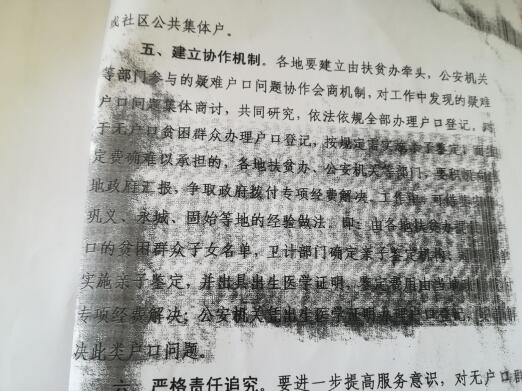 或社区公共集体户。
五、建立协作机制。各地要建立由扶贫办牵头，公安机关
等部门参与的疑难户口问题协作会商机制，对工作中发现的疑难
户口问题集体商讨，共同研究，依法依规全部办理户口登记。
于无户口贫困群众办理户口登记，按规定需实施亲子鉴定，而
定费确难以承担的，各地扶贫办、公安机关等部门，要积极
地政府汇报，争取政府拨付专项经费解决。工作中，可
巩义、永城、固始等地的经验做法。即：由各地扶贫办
口的贫困群众子女名单，卫计部门确定亲子鉴定机构，
实施亲子鉴定，并出具出生医学证明，鉴定费用由当
专项经费解决；公安机关凭出生医学证明办理户口登记，
决此类户口问题。
六、严格责任追究。要进一步提高服务意识，对无户口